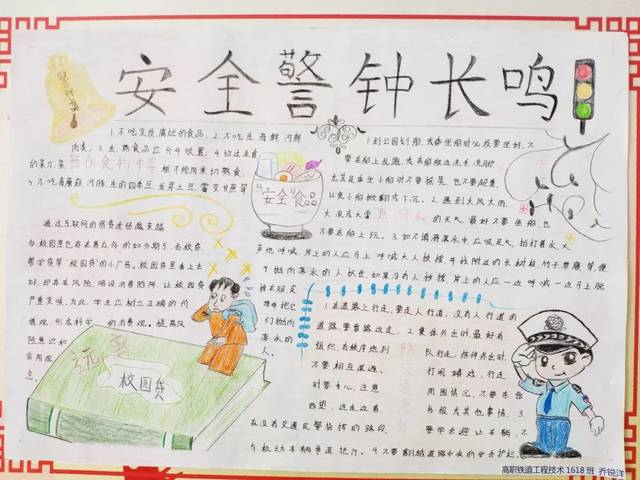 安全警钟长鸣
1.不吃变质腐烂的食品;2.不吃生海鲜河鲜
肉类;3.生熟食品应分开放置;4.切过生食
的菜刀、菜板不能用来切熟食,
预防食物中毒
5.不吃有毒菇河豚生的四季豆 发芽土豆 霉变甘蔗等
"安全"食品
1.到公园划船,或乘坐船时必须要坐好,不
要在船上乱跑,或在船舷边洗手、洗脚,
尤其是乘坐小船时不要摇晃,也不要超重,
以免小船掀翻或下沉。2.遇到大风大雨、
大浪或大雾的天气,最好不要坐船,也
不要在船上玩。3.如不慎滑落水中,应吸足气,拍打着水,大
声地呼喊,岸上的人应马上呼喊大人救援,并就附近的长树枝、竹子、草藤等,便
抛向落水的人抓住,如果没有人救援,岸上的人应一边呼喊,一边马上脱
被衣服皮
带并把它
们抛向
落水的
人。
通过互联网的消费途径越来越
多,校园里也存在着众多的如分期乐、名校贷
等学贷等"校园贷"的小广告。校园贷是看上去美
好,却存在风险,暗设消费陷阱,让校园贷
严重变味,为此,学生应树立正确的价
值观,形成科学的消费观。提高风
险意识和
常用观
念。
远离
校园贷
1.在道路上行走,要走人行道,没有人行道的
道路,要靠路边走。2.集体外出时,最好有
组织、有秩序地列队行走;结伴外出时,
不要相互追逐、打闹、嬉戏;行走
时要专心,注意周围情况,不要东张
西望、边走边看书报或其他事情。3.
在没有交通民警指挥的路段,要学会避让车辆,不
与机动车辆争道抢行。4.不要翻越道路中央的安全护栏
高职铁道工程技术1618班 乔锐洋